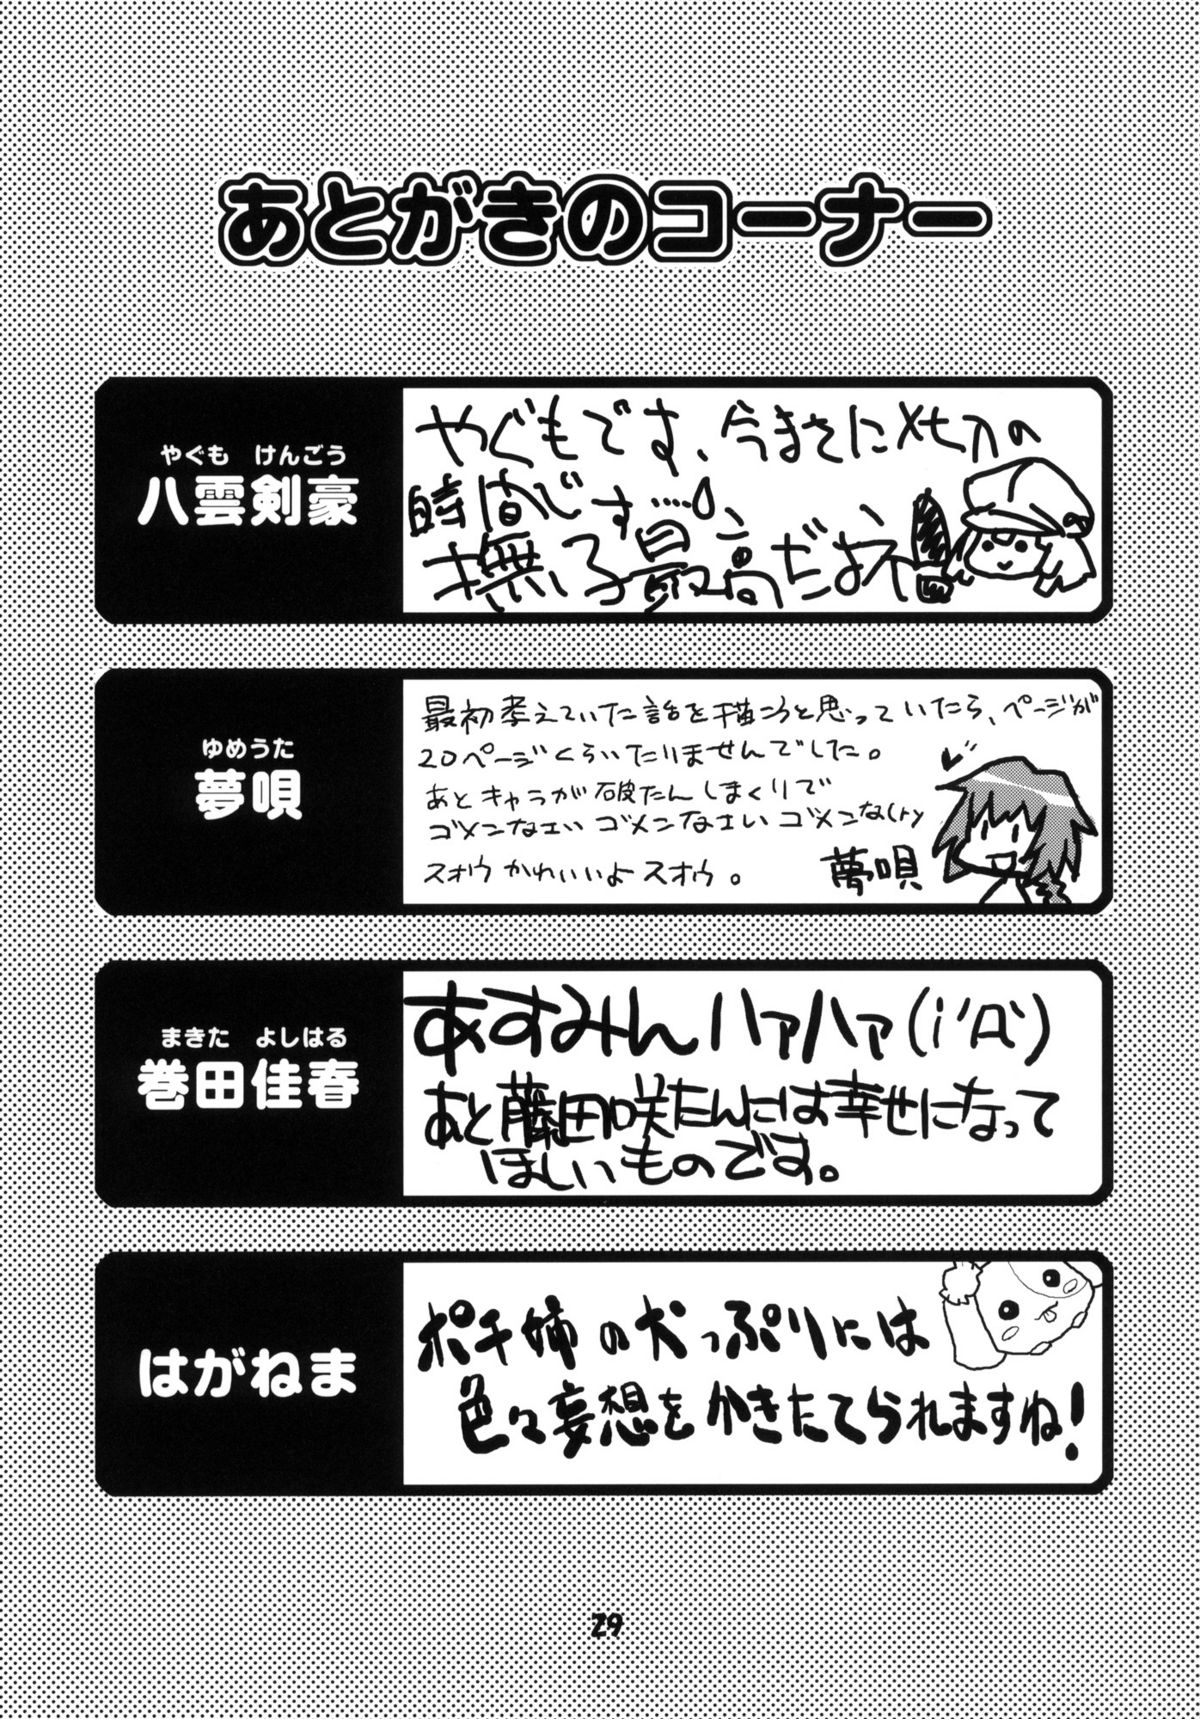 あとがきのコーナー
やぐも けんごう
八雲剣豪
やぐもです、今まさに〆切の
時間です…。
撫子最高だおね
ゆめうた
夢唄
最初考えていた話を描こうと思っていたら、ページが
20ページくらいたりませんでした。
あとキャラが破たんしまくりで
ゴメンなさい ゴメンなさい ゴメンなs(ry
スオウかわいいよスオウ。
夢唄
まきた よしはる
巻田佳春
あすみんハァハァ(;´Д`)
あと藤田咲たんには幸せになって
ほしいものです。
はがねま
ポチ姉の犬っぷりには
色々妄想をかきたてられますね!
29